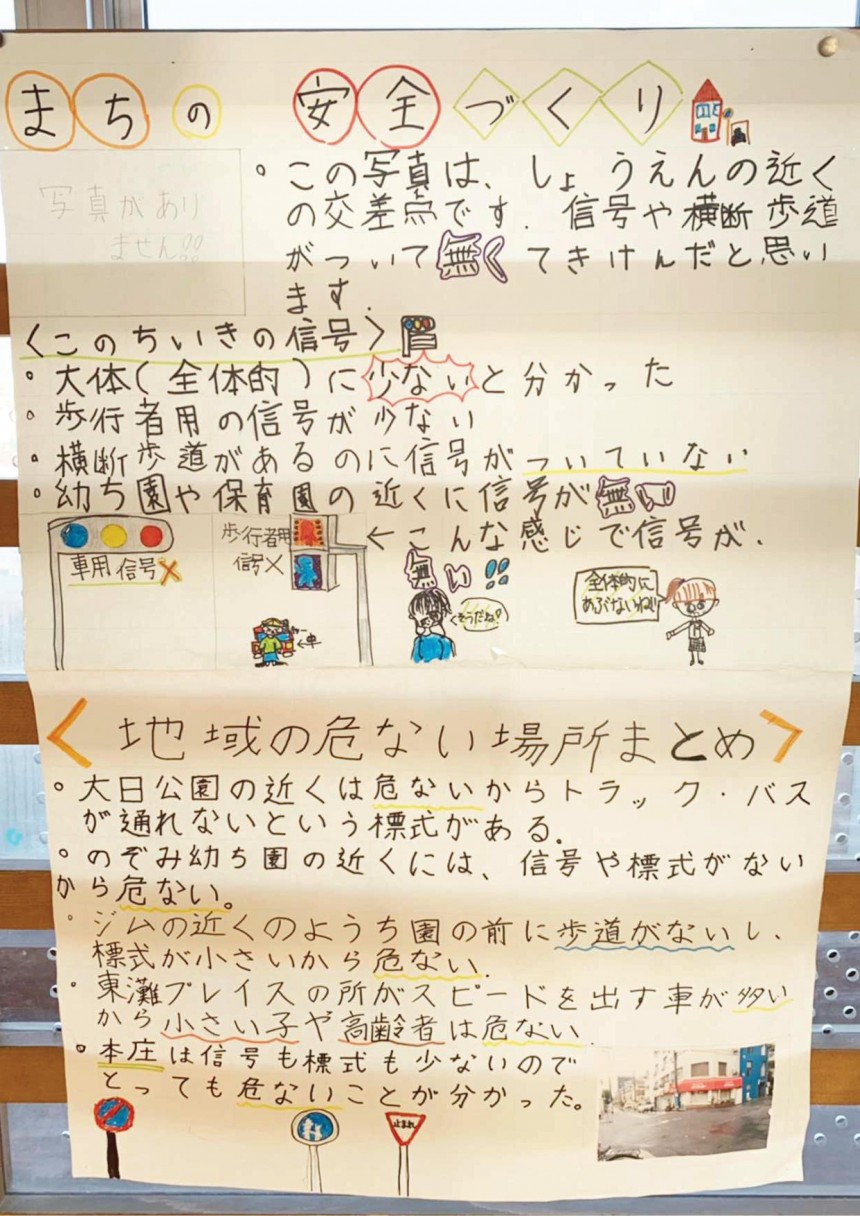 まちの 安全づくり
写真があり
ません!!
。この写真は、しょうえんの近く
の交差点です.信号や横断歩道
がついて無くてきけんだと思い
ます.
〈このちいきの信号〉
・大体(全体的)に少ないと分かった
・歩行者用の信号が少ない
・横断歩道があるのに信号がついていない
・幼ち園や保育園の近くに信号が無い
車用信号×
歩行者用
信号×
←こんな感じで信号が.
無い!!
←車
そうだね!
全体的に
あぶないね!!
〈地域の危ない場所まとめ〉
。大日公園の近くは危ないからトラック・バス
が通れないという標式がある.
。のぞみ幼ち園の近くには、信号や標式がない
から危ない。
。ジムの近くのようち園の前に歩道がないし、
標式が小さいから危ない.
。東灘プレイスの所がスピードを出す車が多い
から小さい子や高齢者は危ない.
。本庄は信号も標式も少ないので
とっても危ないことが分かった。
止まれ